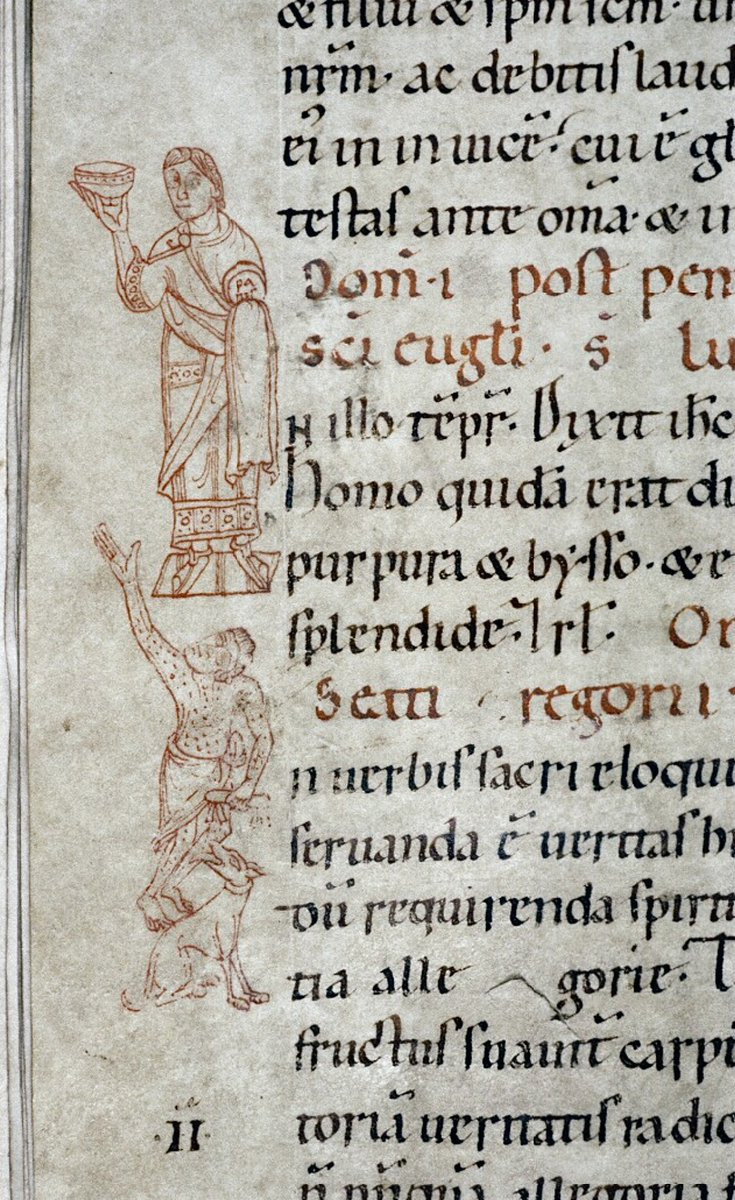 & filiū & spm̄ scm̄· un
nr̄m· ac debitis laud
ei in inuicē· cui ē gl
testas ante om̄a· & in
Dom̄·i post pen
sc̄i eugl̄i· s̄ lu
N illo tēpr̄· Dixit ih̄c
Homo quidā erat di
purpura & bysso· & e
splendide· Irl̄· Om
Scīti regorii·
n uerbis sacri eloqui
seruanda ē ueritas hi
dū requirenda spirit
tia alle gorie· T
fructus suauit̄ carpi
toriā ueritatis radic
PA
·II·